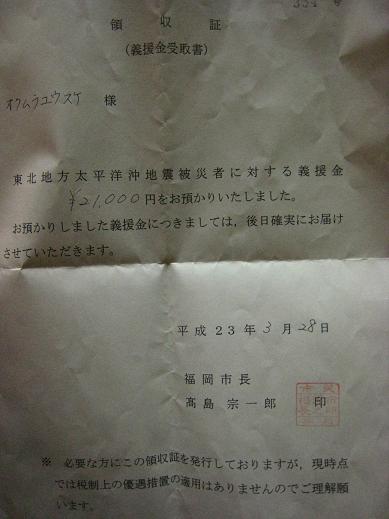 領収証
(義援金受取書)
オクムラユウスケ 様
東北地方太平洋沖地震被災者に対する義援金
¥21,000円をお預かりいたしました。
お預かりしました義援金につきましては,後日確実にお届け
させていただきます。
平成23年3月28日
福岡市長
髙島 宗一郎 印
※ 必要な方にこの領収証を発行しておりますが,現時点
では税制上の優遇措置の適用はありませんのでご理解願
います。